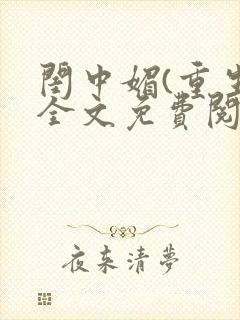 閨中媚(重生
全文免費閱
夜来清夢